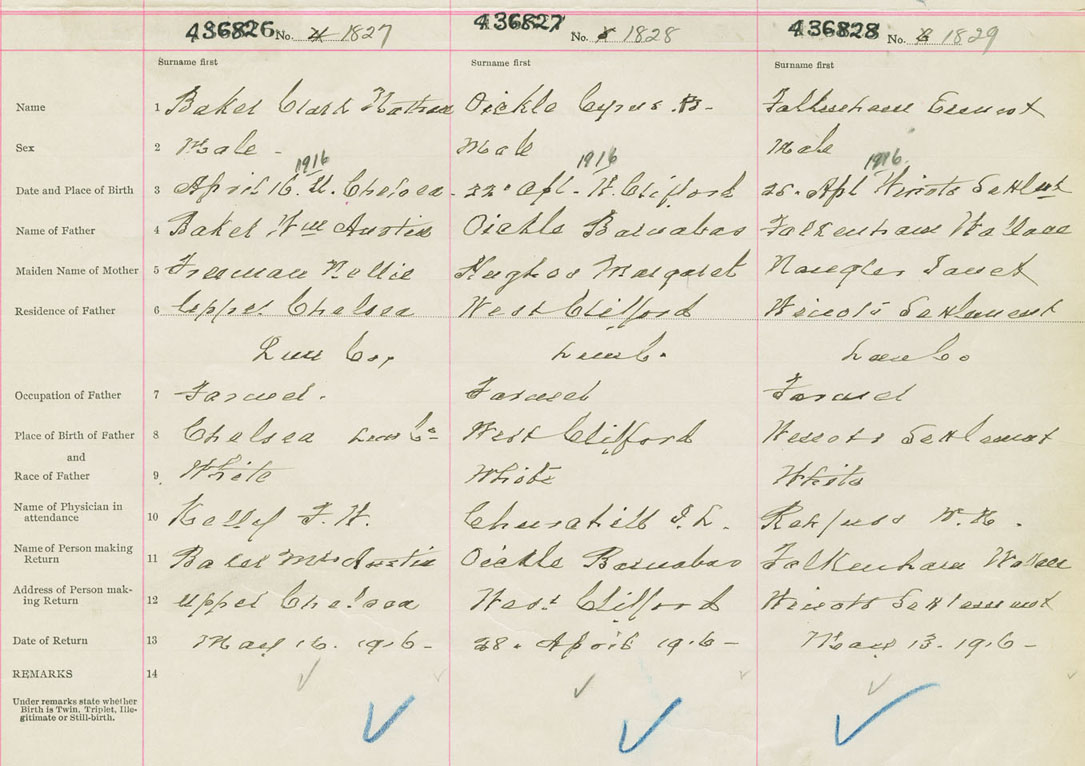 436826 No. 1827 436827 No. 1828 436828 No. 1829
Surname first Surname first Surname first
Name 1 Baker Clark Oickle Cyrus B- Falkenham
Sex 2 Male - Male Male
1916 1916 1916
Date and Place of Birth 3 April 16. U. Chelsea - 22. Apl. W. Clifford 25. Apl
Name of Father 4 Baker Wm Austin Oickle Barnabas Falkenham Wallace
Maiden Name of Mother 5 Freeman Nellie Hughes Margaret
Residence of Father 6 Upper Chelsea West Clifford Settlement
Lun Co, Lun C. Lun Co
Occupation of Father 7 Farmer. Farmer Farmer
Place of Birth of Father 8 Chelsea Lun Co West Clifford Settlement
and
Race of Father 9 White White White
Name of Physician in
attendance 10 Kelly F. W. Churchill
Name of Person making
Return 11 Baker Mrs Austin Oickle Barnabas Falkenham Wallace
Address of Person mak-
ing Return 12 Upper Chelsea West Clifford Settlement
Date of Return 13 May 16. 1916 - 28. April 1916 - May 13. 1916 -
REMARKS 14
Under remarks state whether
Birth is Twin, Triplet, Ille-
gitimate or Still-birth.